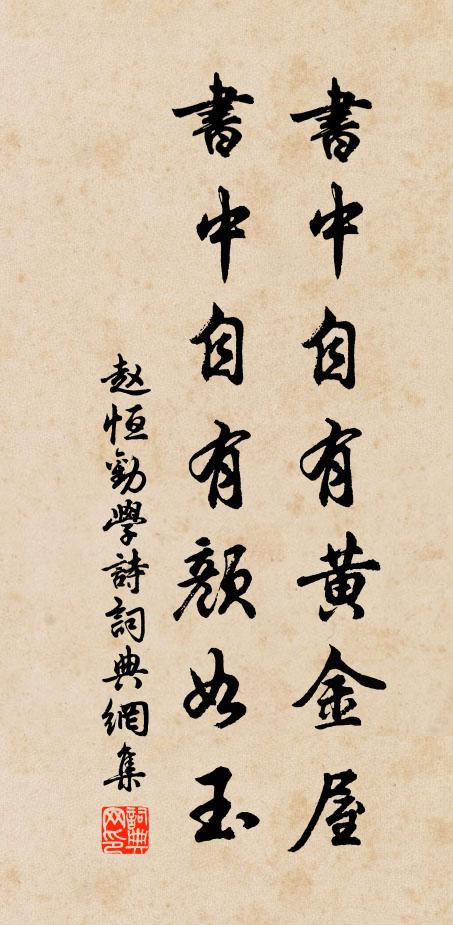 書中自有黄金屋
書中自有顔如玉
赵恒勸學詩詞典網集
詞典网印